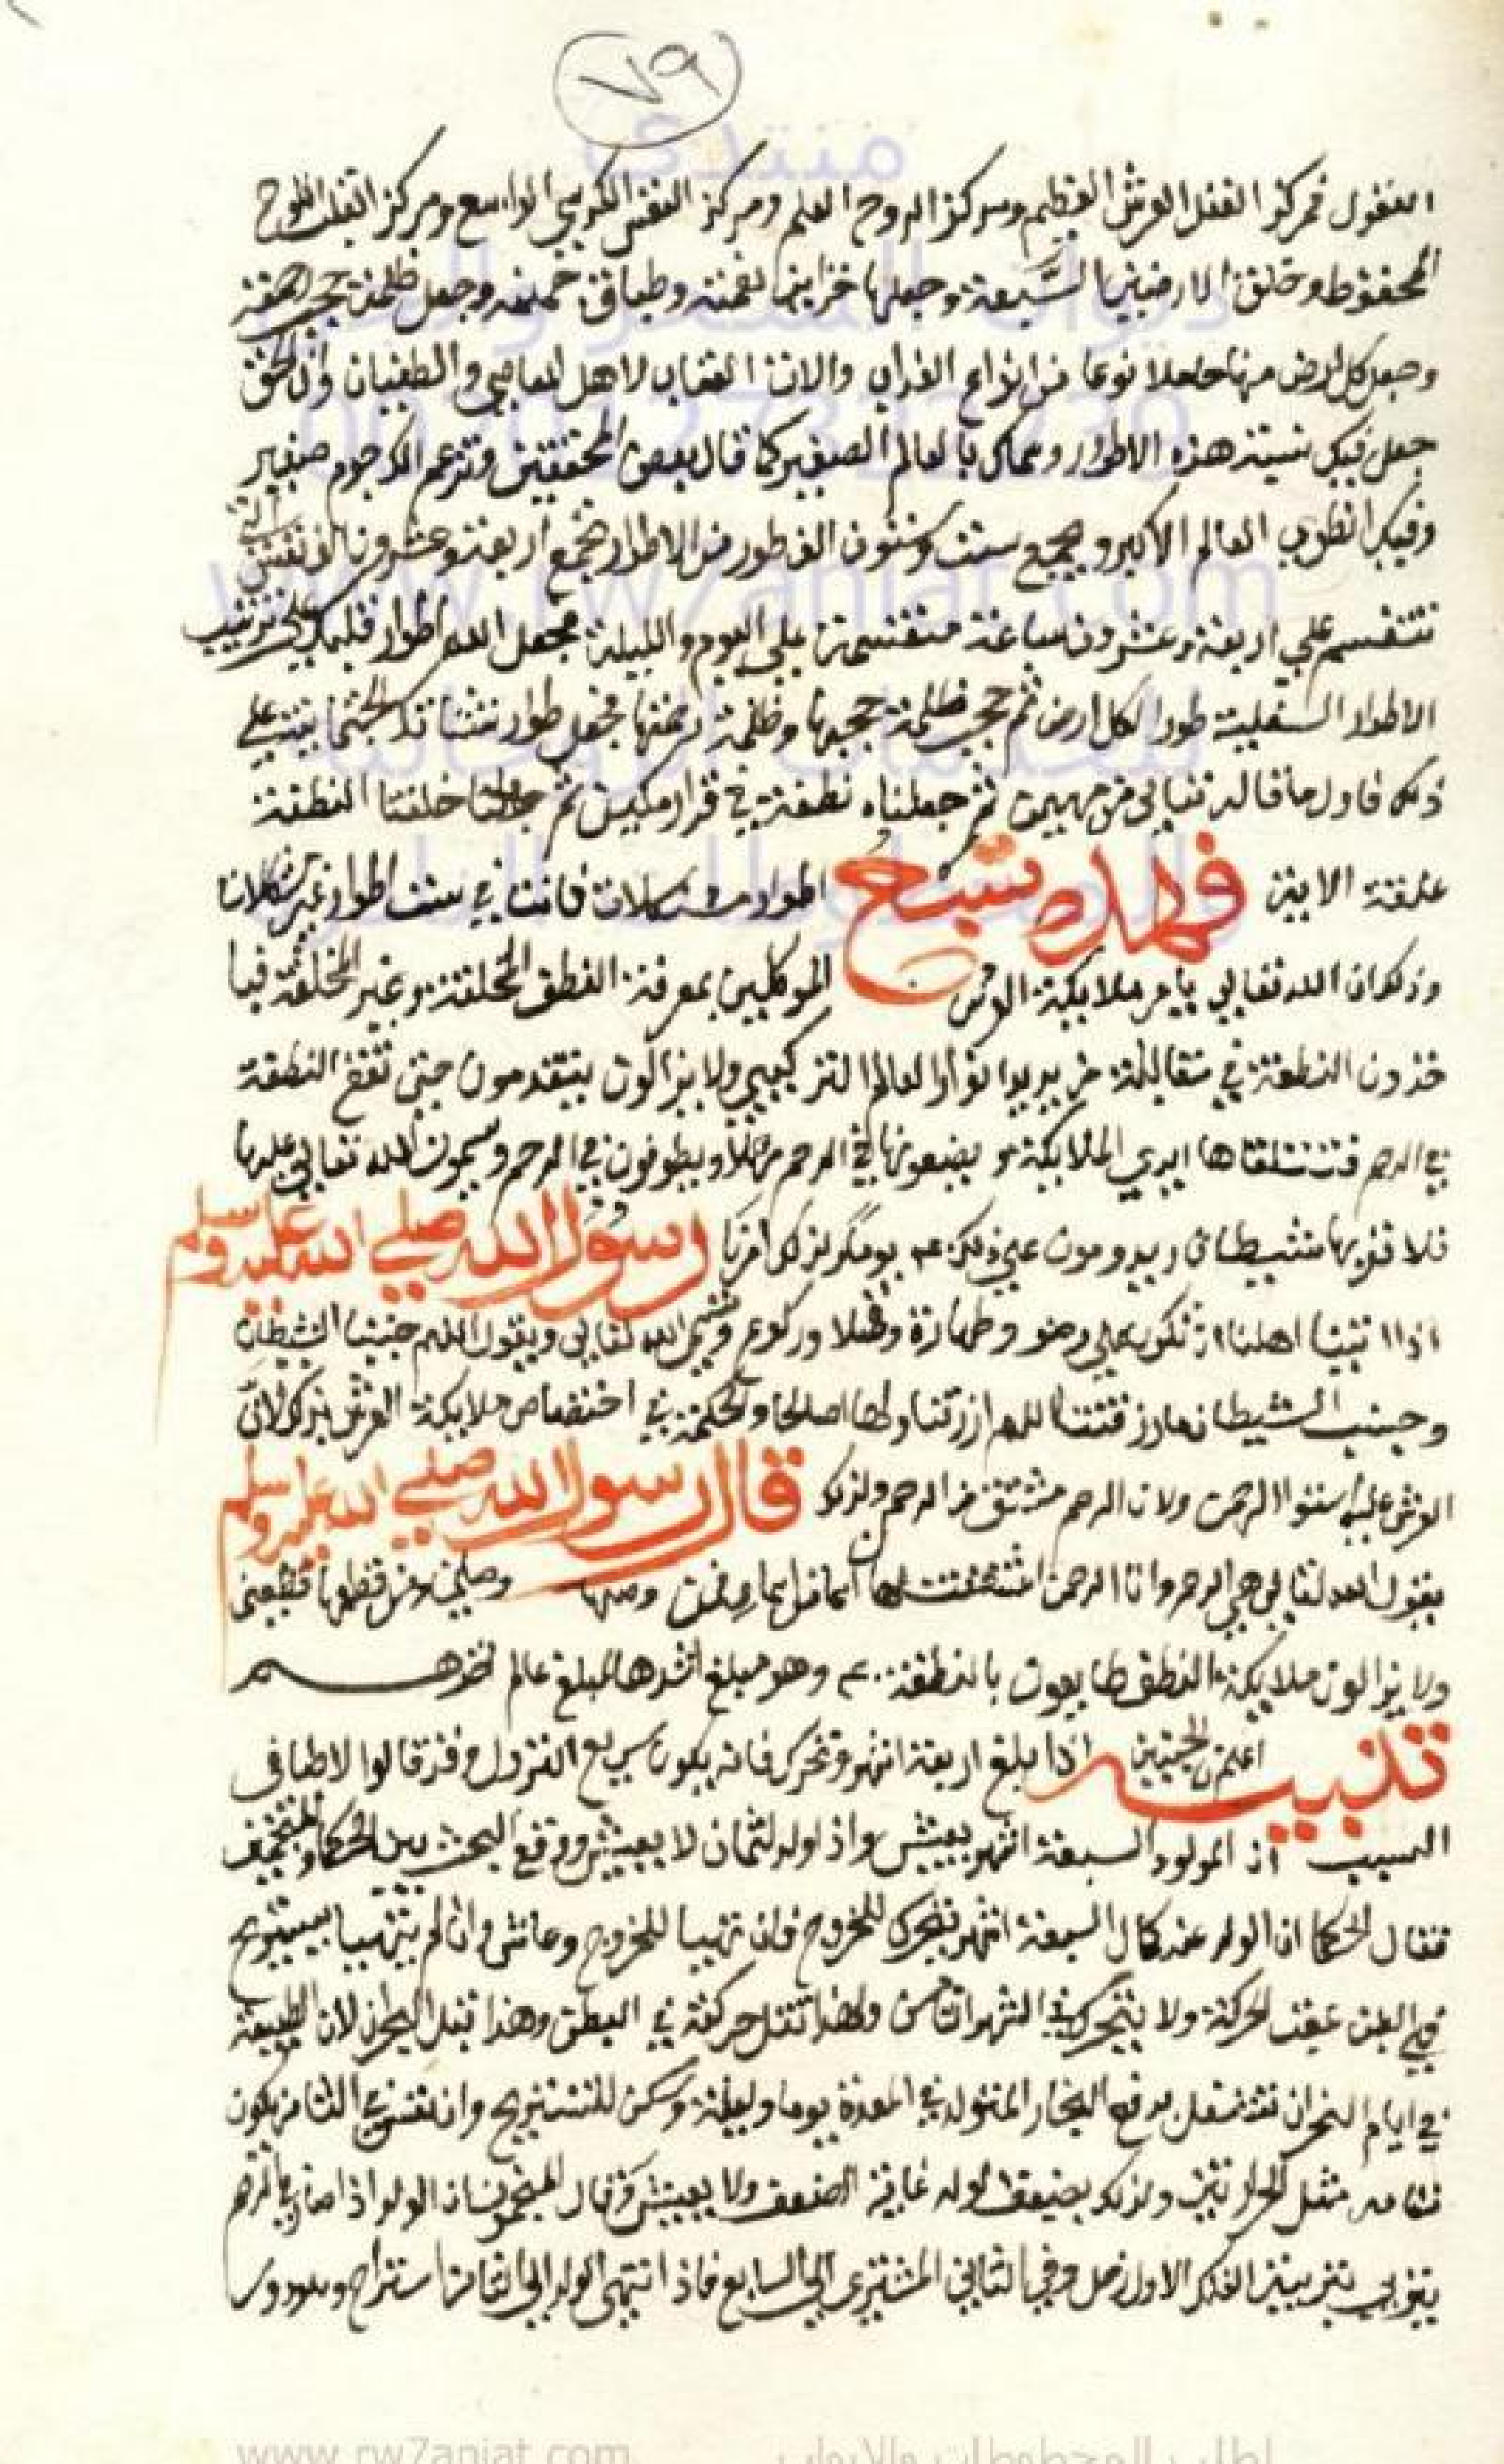 ٧٩
منتدى
العقول فمركز العقل العرش العظيم ومركز الروح القلم ومركز النفس الكرسي الواسع ومركز القلب اللوح
المحفوظ وخلق الارضين السبعة وجعلها خزاين نقمته وطباق جهنمه وجعل ظلمة حجب
وجعل كل ارض منها حاملا نوعا من انواع العذاب والات العقاب لاهل المعاصي والطغيان وان الحق
جعل فيك نسبة هذه الاطوار وسماك بالعالم الصغير كما قال بعض المحققين وتزعم انك جرم صغير
وفيك انطوى العالم الاكبر وجميع ست وستون الف طور من الاطوار تجمع اربعة وعشرون الف نفس التي
تنقسم علي اربعة وعشرون ساعة منقسمة علي اليوم والليلة فجعل الله اطوار قلبك علي ترتيب
الاطوار السفلية طورا لكل ارض ثم حجب ظلمة حجبها وظلمة ارضها فجعل طور نشاتك الجثمانية علي
ذلك فاول ما قال تعالي من مهين ثم جعلناه نطفة في قرار مكين ثم خلقنا النطفة
علقة الاية فهذه سبع اطوار مشكلات فانت في ست اطوار غير مشكلات
وذلك ان الله تعالي يامر ملايكة العرش الموكلين بمعرفة النطق المخلقة وغير المخلقة فيا
خذون النطفة في مقابلة من يريدوا العالم التركيبي ولا يزالون يتقدمون حتي تقع النطفة
في الرحم فتتلقاها ايدي الملايكة ويضعونها في الرحم ويطوفون في الرحم ويسمون الله تعالي عليها
فلا يقربها شيطان ويدومون علي ذلك يوما ولذلك امرنا رسول الله صلي الله عليه وسلم
اذا اتينا اهلنا ان نكون علي وضو وطهارة وركوع ونسمي الله تعالي ويقول اللهم جنبنا الشيطان
وجنب الشيطان ما رزقتنا اللهم ارزقنا ولدا صالحا والحكمة في اختصاص ملايكة العرش بذلك لان
العرش عليه استوا الرحمن ولان الرحم مشتق من الرحمن ولذلك قال رسول الله صلي الله عليه وسلم
يقول الله تعالي هي الرحم وانا الرحمن اشتققت لها اسما من اسمي فمن وصلها وصلني ومن قطعها قطعني
ولا يزالون ملايكة النطق طايعون بالنطفة وهو مبلغ اشدها لمبلغ عالم
تنبيه اعلم ان الجنين اذا بلغ اربعة اشهر وتحرك فانه يكون سريع النزول وقد قالوا الاطبا في
السبب ان المولود السبعة اشهر يعيش واذا ولد لثمان لا يعيش ووقع البحث بين الحكما والمنجمين
فقال الحكما ان الولد عند كمال السبعة اشهر يتحرك للخروج فان تهيا للخروج وعاش وان لم يتهيا يستريح
في البطن عقب الحركة ولا يتحرك في الشهر الثامن ولهذا تقل حركته في البطن وهذا قبل البحران لان الطبيعة
في ايام البحران تشتغل بدفع البخار المتولد في المعدة يوما وليلة وسكن للتستريح وان تقوي في الثامن يكون
تقامه مثل الحرارتين ولذلك يضعف الولد غاية الضعف ولا يعيش وقال المنجمون ان الولد اذا صار في الرحم
يتولي تربيته الفلك الاول زحل وفي الثاني المشتري الي السابع فاذا انتهي الولد الي الثامن استراح
www.rw7aniat.com
اطلب المخطوطات والابواب